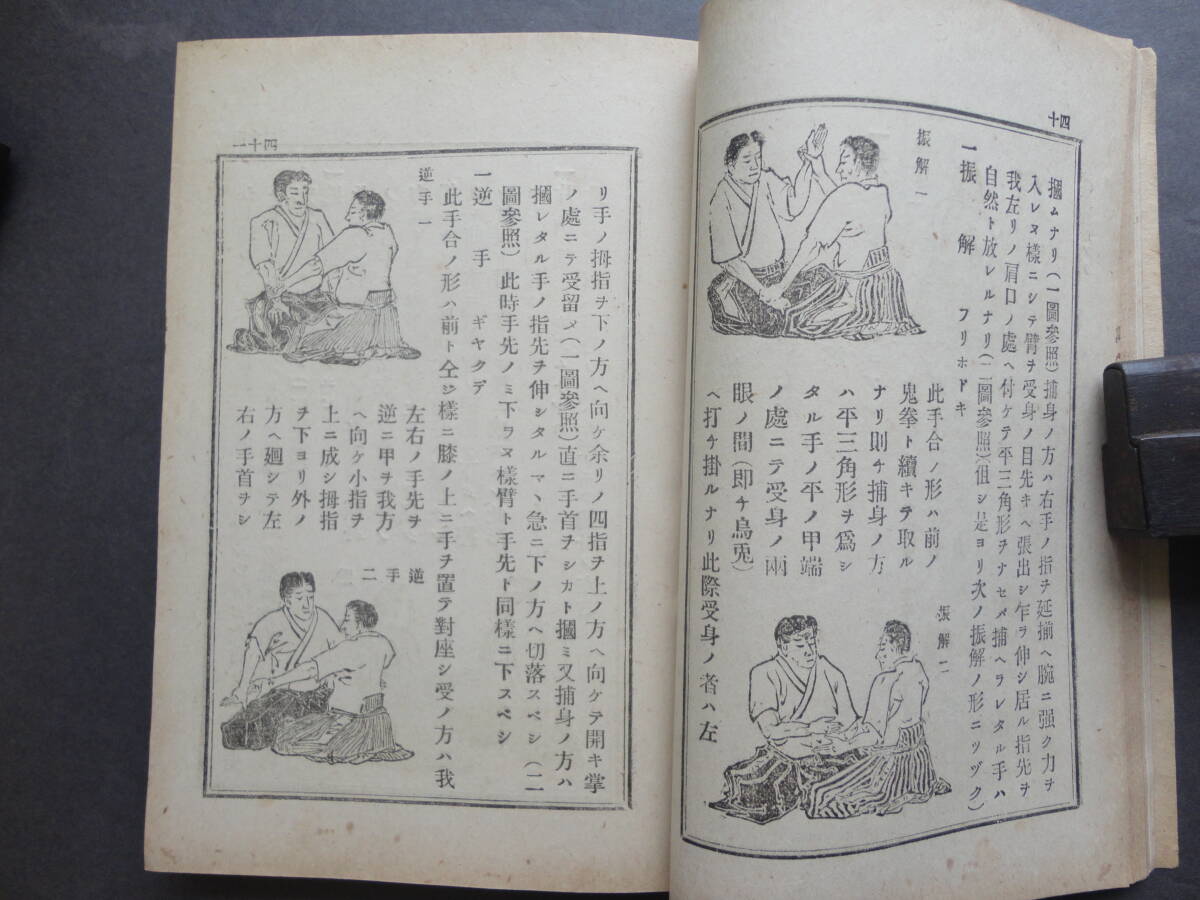 四十
摑ムナリ(一圖參照)捕身ノ方ハ右手ノ指ヲ延揃ヘ腕ニ强ク力ヲ
入レヌ樣ニシテ臂ヲ受身ノ目先キヘ張出シ乍ラ伸シ居ル指先ヲ
我左リノ肩口ノ處ヘ付ケテ平三角形ヲナセメ捕ヘラレタル手ハ
自然ト放レルナリ(二圖參照)但シ是ヨリ次ノ振解ノ形ニツヅク)
一振解 フリホドキ
振解一
此手合ノ形ハ前ノ
鬼拳ト續キヲ取ル
ナリ則チ捕身ノ方
ハ平三角形ヲ爲シ
タル手ノ平ノ甲端
ノ處ニテ受身ノ兩
眼ノ間(即チ烏兎)
ヘ打チ掛ルナリ此際受身ノ者ハ左
振解二
四十一
リ手ノ拇指ヲ下ノ方ヘ向ケ余リノ四指ヲ上ノ方ヘ向ケテ開キ掌
ノ處ニテ受留メ(一圖參照)直ニ手首ヲシカト摑ミ又捕身ノ方ハ
摑レタル手ノ指先ヲ伸シタルマヽ急ニ下ノ方ヘ切落スベシ(二
圖參照)此時手先ノミ下ラヌ樣臂ト手先ト同樣ニ下スベシ
一逆手 ギヤクデ
此手合ノ形ハ前ト仝ジ樣ニ膝ノ上ニ手ヲ置テ對座シ受ノ方ハ我
逆手一
左右ノ手先ヲ
逆ニ甲ヲ我方
ヘ向ケ小指ヲ
上ニ成シ拇指
ヲ下ヨリ外ノ
方ヘ廻シテ左
右ノ手首ヲシ
逆手二